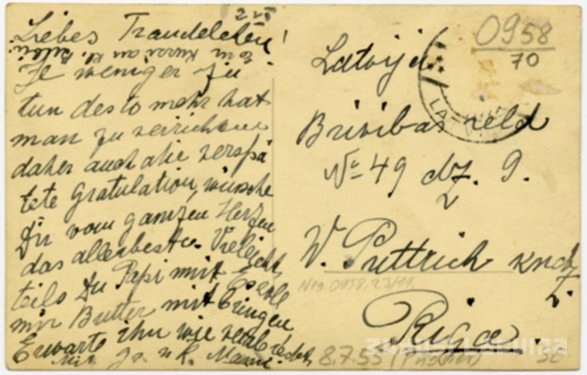 Liebes Traudelchen!
Je weniger zu
tun desto mehr hat
man zu verrichten
daher auch die verspä
tete Gratulation, wünsche
Dir vom ganzen Herzen
das allerbeste. Vielleicht
teils Du Papi mit Er solle
mir Butter mitbringen
Erwarte ihn wie verabredet
Latvija
Brivibas ield
No 49 dz. 9.
W. Puttrich
Riga.
0958
70
8.7.55